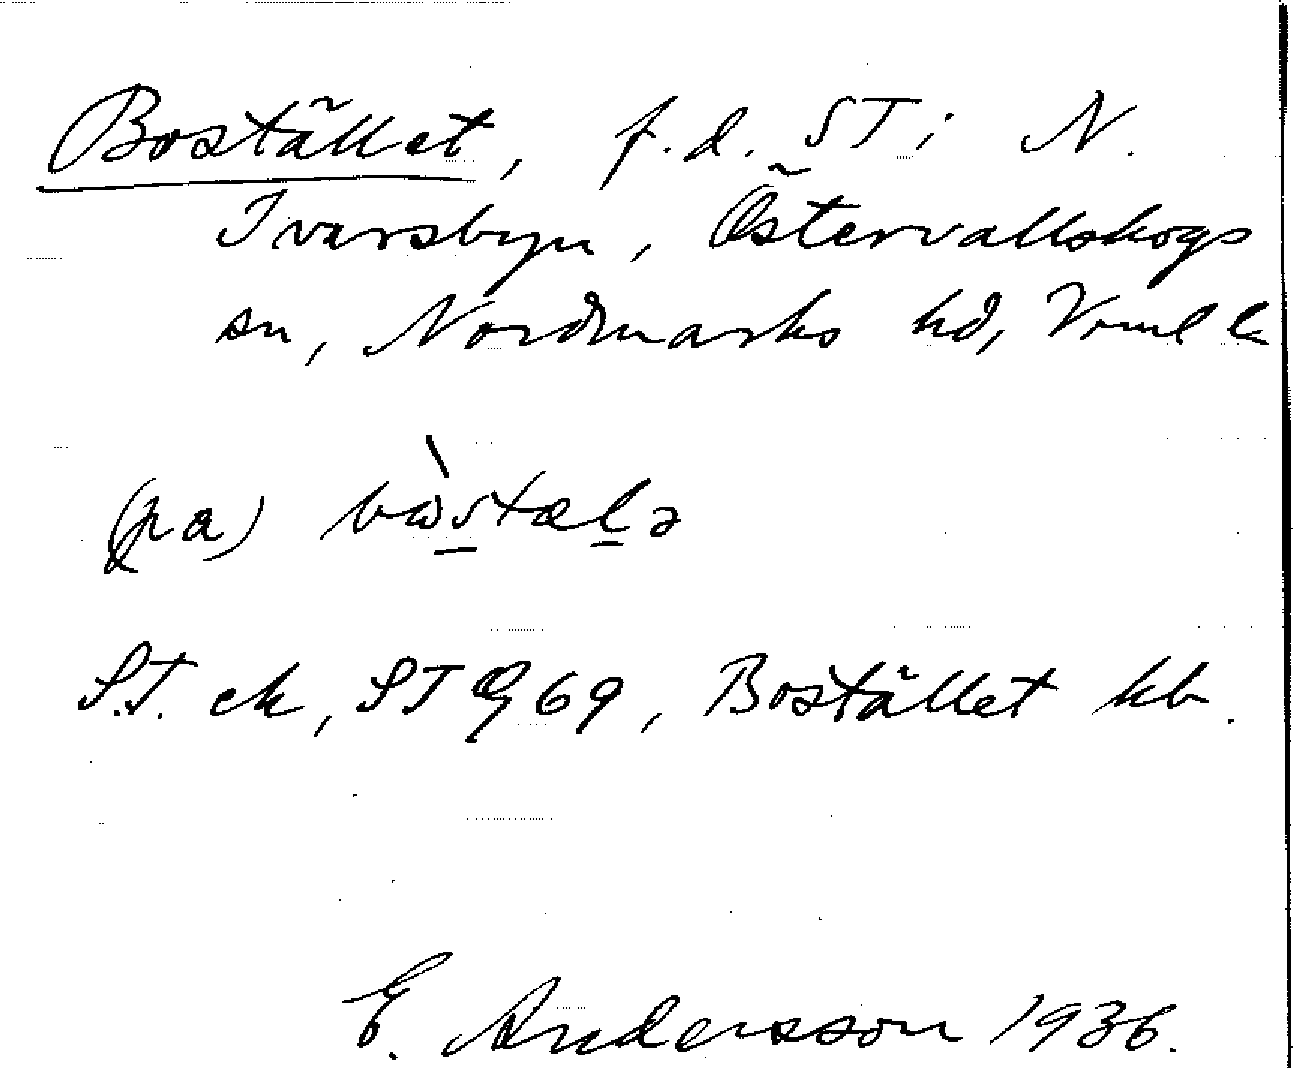 Bostället, f.d. ST i N.
Ivarsbyn, Östervallskogs
sn, Nordmarks hd, Vrml l.
(pa) bòstælə
S.T. ek, ST Q 69, Bostället kb.
E. Andersson 1936.